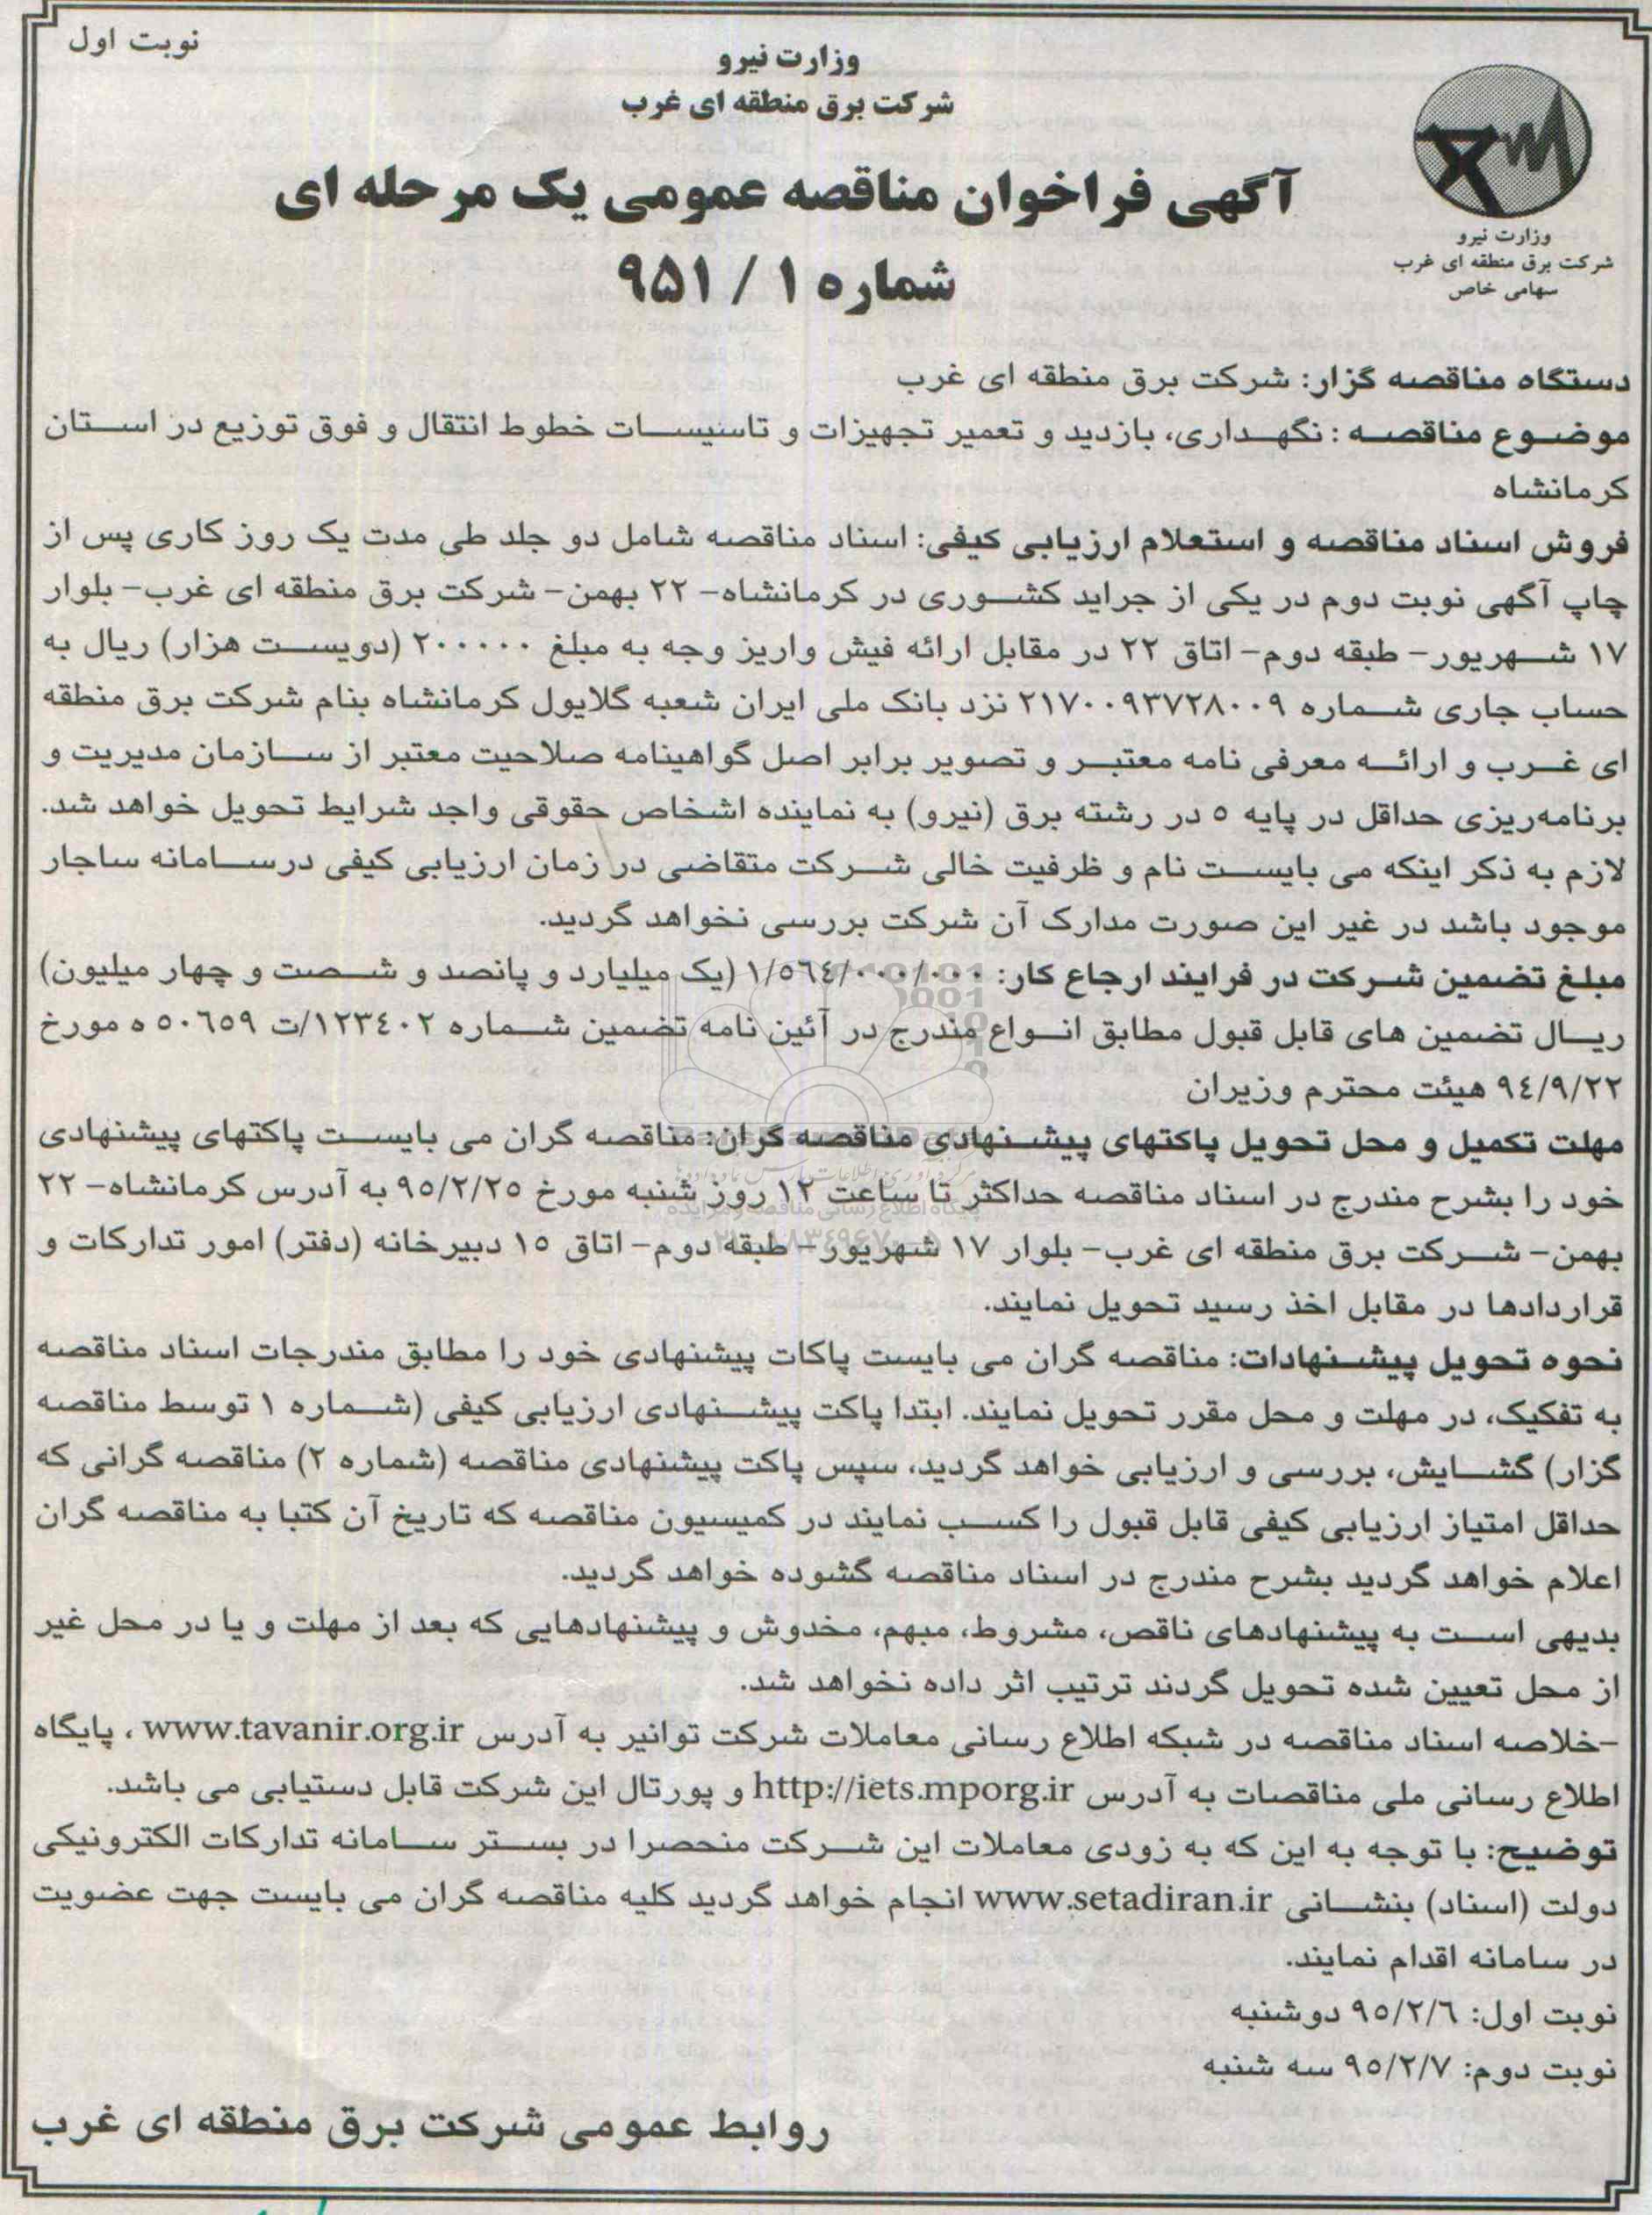 نوبت اول
وزارت نیرو
شرکت برق منطقه ای غرب
آگهی فراخوان مناقصه عمومی یک مرحله ای
شماره ۱ / ۹۵۱
وزارت نیرو
شرکت برق منطقه ای غرب
سهامی خاص
دستگاه مناقصه گزار: شرکت برق منطقه ای غرب
موضوع مناقصه : نگهداری، بازدید و تعمیر تجهیزات و تاسیسات خطوط انتقال و فوق توزیع در استان
کرمانشاه
فروش اسناد مناقصه و استعلام ارزیابی کیفی: اسناد مناقصه شامل دو جلد طی مدت یک روز کاری پس از
چاپ آگهی نوبت دوم در یکی از جراید کشوری در کرمانشاه- ۲۲ بهمن- شرکت برق منطقه ای غرب- بلوار
۱۷ شهریور- طبقه دوم- اتاق ۲۲ در مقابل ارائه فیش واریز وجه به مبلغ ۲۰۰۰۰۰ (دویست هزار) ریال به
حساب جاری شماره ۲۱۷۰۰۹۳۷۲۸۰۰۹ نزد بانک ملی ایران شعبه گلایول کرمانشاه بنام شرکت برق منطقه
ای غرب و ارائه معرفی نامه معتبر و تصویر برابر اصل گواهینامه صلاحیت معتبر از سازمان مدیریت و
برنامه‌ریزی حداقل در پایه ۵ در رشته برق (نیرو) به نماینده اشخاص حقوقی واجد شرایط تحویل خواهد شد.
لازم به ذکر اینکه می بایست نام و ظرفیت خالی شرکت متقاضی در زمان ارزیابی کیفی درسامانه ساجار
موجود باشد در غیر این صورت مدارک آن شرکت بررسی نخواهد گردید.
مبلغ تضمین شرکت در فرایند ارجاع کار: ۱/۵۶۴/۰۰۰/۰۰۰ (یک میلیارد و پانصد و شصت و چهار میلیون)
ریال تضمین های قابل قبول مطابق انواع مندرج در آئین نامه تضمین شماره ۱۲۳۴۰۲/ت ۵۰۶۵۹ ه مورخ
۹۴/۹/۲۲ هیئت محترم وزیران
مهلت تکمیل و محل تحویل پاکتهای پیشنهادی مناقصه گران: مناقصه گران می بایست پاکتهای پیشنهادی
خود را بشرح مندرج در اسناد مناقصه حداکثر تا ساعت ۱۲ روز شنبه مورخ ۹۵/۲/۲۵ به آدرس کرمانشاه- ۲۲
بهمن- شرکت برق منطقه ای غرب- بلوار ۱۷ شهریور- طبقه دوم- اتاق ۱۵ دبیرخانه (دفتر) امور تدارکات و
قراردادها در مقابل اخذ رسید تحویل نمایند.
نحوه تحویل پیشنهادات: مناقصه گران می بایست پاکات پیشنهادی خود را مطابق مندرجات اسناد مناقصه
به تفکیک، در مهلت و محل مقرر تحویل نمایند. ابتدا پاکت پیشنهادی ارزیابی کیفی (شماره ۱ توسط مناقصه
گزار) گشایش، بررسی و ارزیابی خواهد گردید، سپس پاکت پیشنهادی مناقصه (شماره ۲) مناقصه گرانی که
حداقل امتیاز ارزیابی کیفی قابل قبول را کسب نمایند در کمیسیون مناقصه که تاریخ آن کتبا به مناقصه گران
اعلام خواهد گردید بشرح مندرج در اسناد مناقصه گشوده خواهد گردید.
بدیهی است به پیشنهادهای ناقص، مشروط، مبهم، مخدوش و پیشنهادهایی که بعد از مهلت و یا در محل غیر
از محل تعیین شده تحویل گردند ترتیب اثر داده نخواهد شد.
-خلاصه اسناد مناقصه در شبکه اطلاع رسانی معاملات شرکت توانیر به آدرس www.tavanir.org.ir ، پایگاه
اطلاع رسانی ملی مناقصات به آدرس http://iets.mporg.ir و پورتال این شرکت قابل دستیابی می باشد.
توضیح: با توجه به این که به زودی معاملات این شرکت منحصرا در بستر سامانه تدارکات الکترونیکی
دولت (اسناد) بنشانی www.setadiran.ir انجام خواهد گردید کلیه مناقصه گران می بایست جهت عضویت
در سامانه اقدام نمایند.
نوبت اول: ۹۵/۲/۶ دوشنبه
نوبت دوم: ۹۵/۲/۷ سه شنبه
روابط عمومی شرکت برق منطقه ای غرب